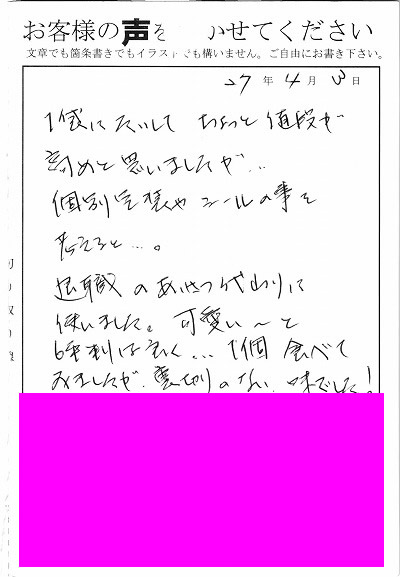 お客様の声を かせてください
文章でも箇条書きでもイラストでも構いません。ご自由にお書き下さい。
27年4月 日
1袋にたいして ちょっと値段が
高めと思いましたが…
個別包装や シールの事を
考えると…。
退職のあいさつ代わりに
使いました。可愛い～と
評判は良く… 1個 食べて
みましたが、裏切りのない 味でした!